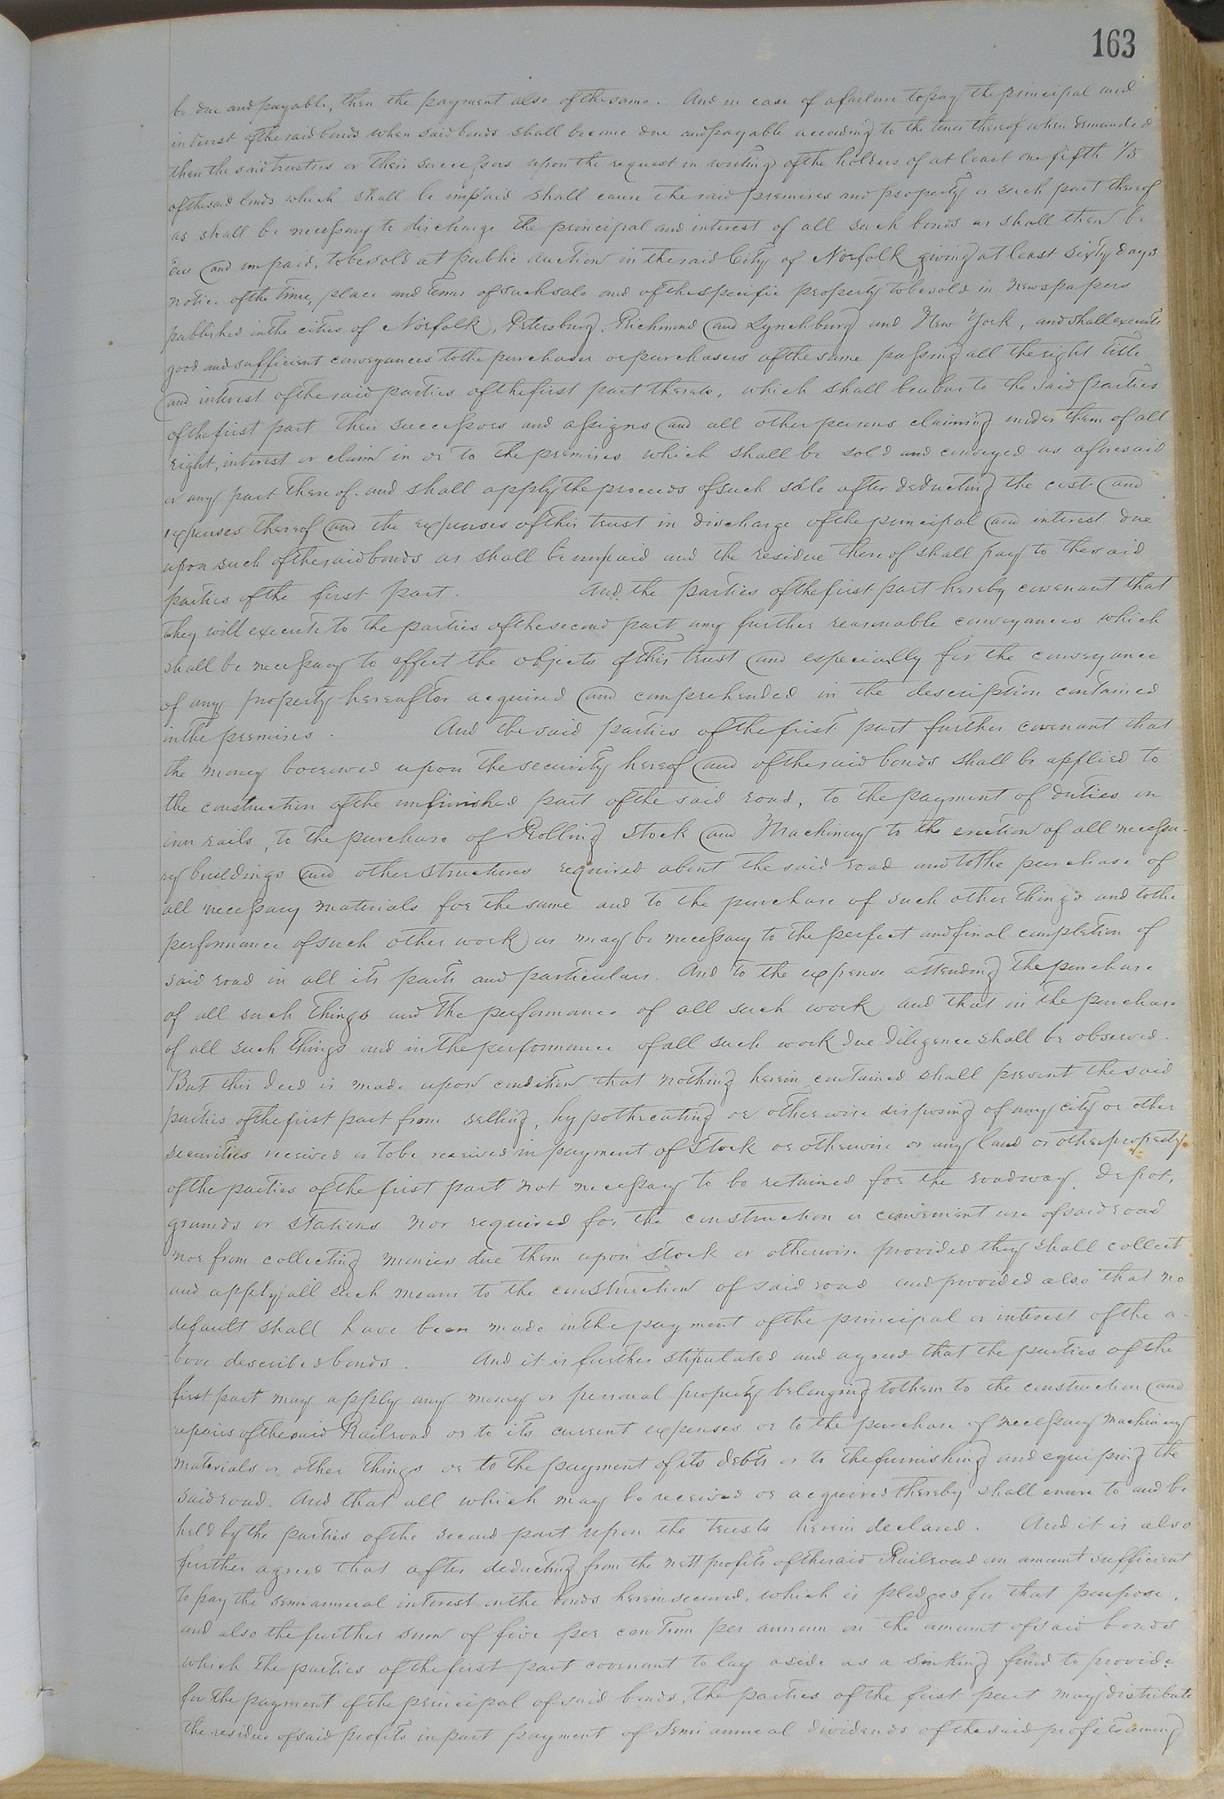 163
be due and payable, then the payment also of the same. And in case of a failure to pay the principal and
interest of the said bonds when said bonds shall become due and payable according to the tenor thereof when demanded
then the said trustees or their successors upon the request in writing of the holders of at least one fifth 1/5
of the said bonds which shall be unpaid shall cause the said premises and property or such part thereof
as shall be necessary to discharge the principal and interest of all such bonds as shall then be
due and unpaid, to be sold at public auction in the said City of Norfolk giving at least sixty days
notice of the time, place and terms of such sale and of the specific property to be sold in newspapers
published in the cities of Norfolk, Petersburg, Richmond and Lynchburg and New York, and shall execute
good and sufficient conveyances to the purchaser or purchasers of the same passing all the right title
and interest of the said parties of the first part thereto, which shall be a bar to the said parties
of the first part their successors and assigns and all other persons claiming under them of all
right, interest or claim in or to the premises which shall be sold and conveyed as aforesaid
or any part thereof and shall apply the proceeds of such sale after deducting the cost and
expenses thereof and the expenses of this trust in discharge of the principal and interest due
upon such of the said bonds as shall be unpaid and the residue thereof shall pay to the said
parties of the first part. And the parties of the first part hereby covenant that
they will execute to the parties of the second part any further reasonable conveyances which
shall be necessary to effect the objects of this trust and especially for the conveyance
of any property hereafter acquired and comprehended in the description contained
in the premises. And the said parties of the first part further covenant that
the money borrowed upon the security hereof and of the said bonds shall be applied to
the construction of the unfinished part of the said road, to the payment of duties on
iron rails, to the purchase of Rolling Stock and Machinery to the erection of all necessa-
ry buildings and other structures required about the said road and to the purchase of
all necessary materials for the same and to the purchase of such other things and to the
performance of such other work as may be necessary to the perfect and final completion of
said road in all its parts and particulars. And to the expense attending the purchase
of all such things and the performance of all such work and that in the purchase
of all such things and in the performance of all such work due diligence shall be observed.
But this deed is made upon condition that nothing herein contained shall prevent the said
parties of the first part from selling, hypothecating or otherwise disposing of any city or other
securities received or to be received in payment of Stock or otherwise or any land or other property
of the parties of the first part not necessary to be retained for the roadway, depot,
grounds or stations nor required for the construction or convenient use of said road
nor from collecting monies due them upon stock or otherwise provided they shall collect
and apply all such means to the construction of said road and provided also that no
default shall have been made in the payment of the principal or interest of the a-
bove described bonds. And it is further stipulated and agreed that the parties of the
first part may apply any money or personal property belonging to them to the construction and
repairs of the said Railroad or to its current expenses or to the purchase of necessary machinery
materials or other things or to the payment of its debts or to the furnishing and equiping the
said road. And that all which may be received or acquired thereby shall enure to and be
held by the parties of the second part upon the trusts herein declared. And it is also
further agreed that after deducting from the nett profits of the said Railroad an amount sufficient
to pay the semiannual interest on the bonds herein secured, which is pledged for that purpose,
and also the further sum of five per centum per annum on the amount of said bonds
which the parties of the first part covenant to lay aside as a Sinking fund to provide
for the payment of the principal of said bonds, the parties of the first part may distribute
the residue of said profits in part payment of Semi annual dividends of the said profits among